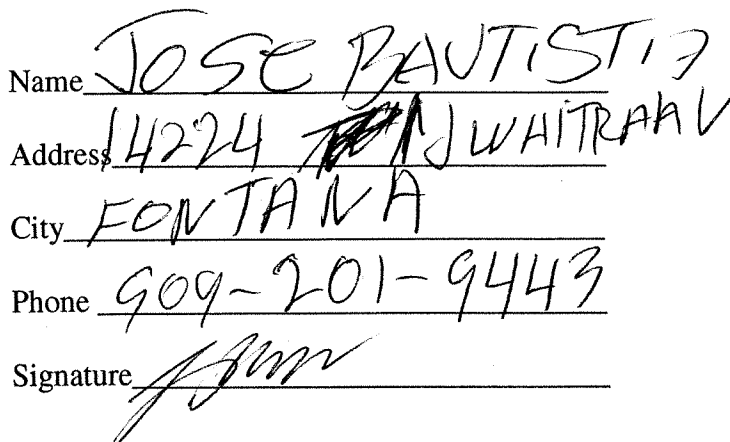 Name JOSE BAUTISTIA
Address 14224 WHITRAAV
City FONTANA
Phone 909-201-9443
Signature